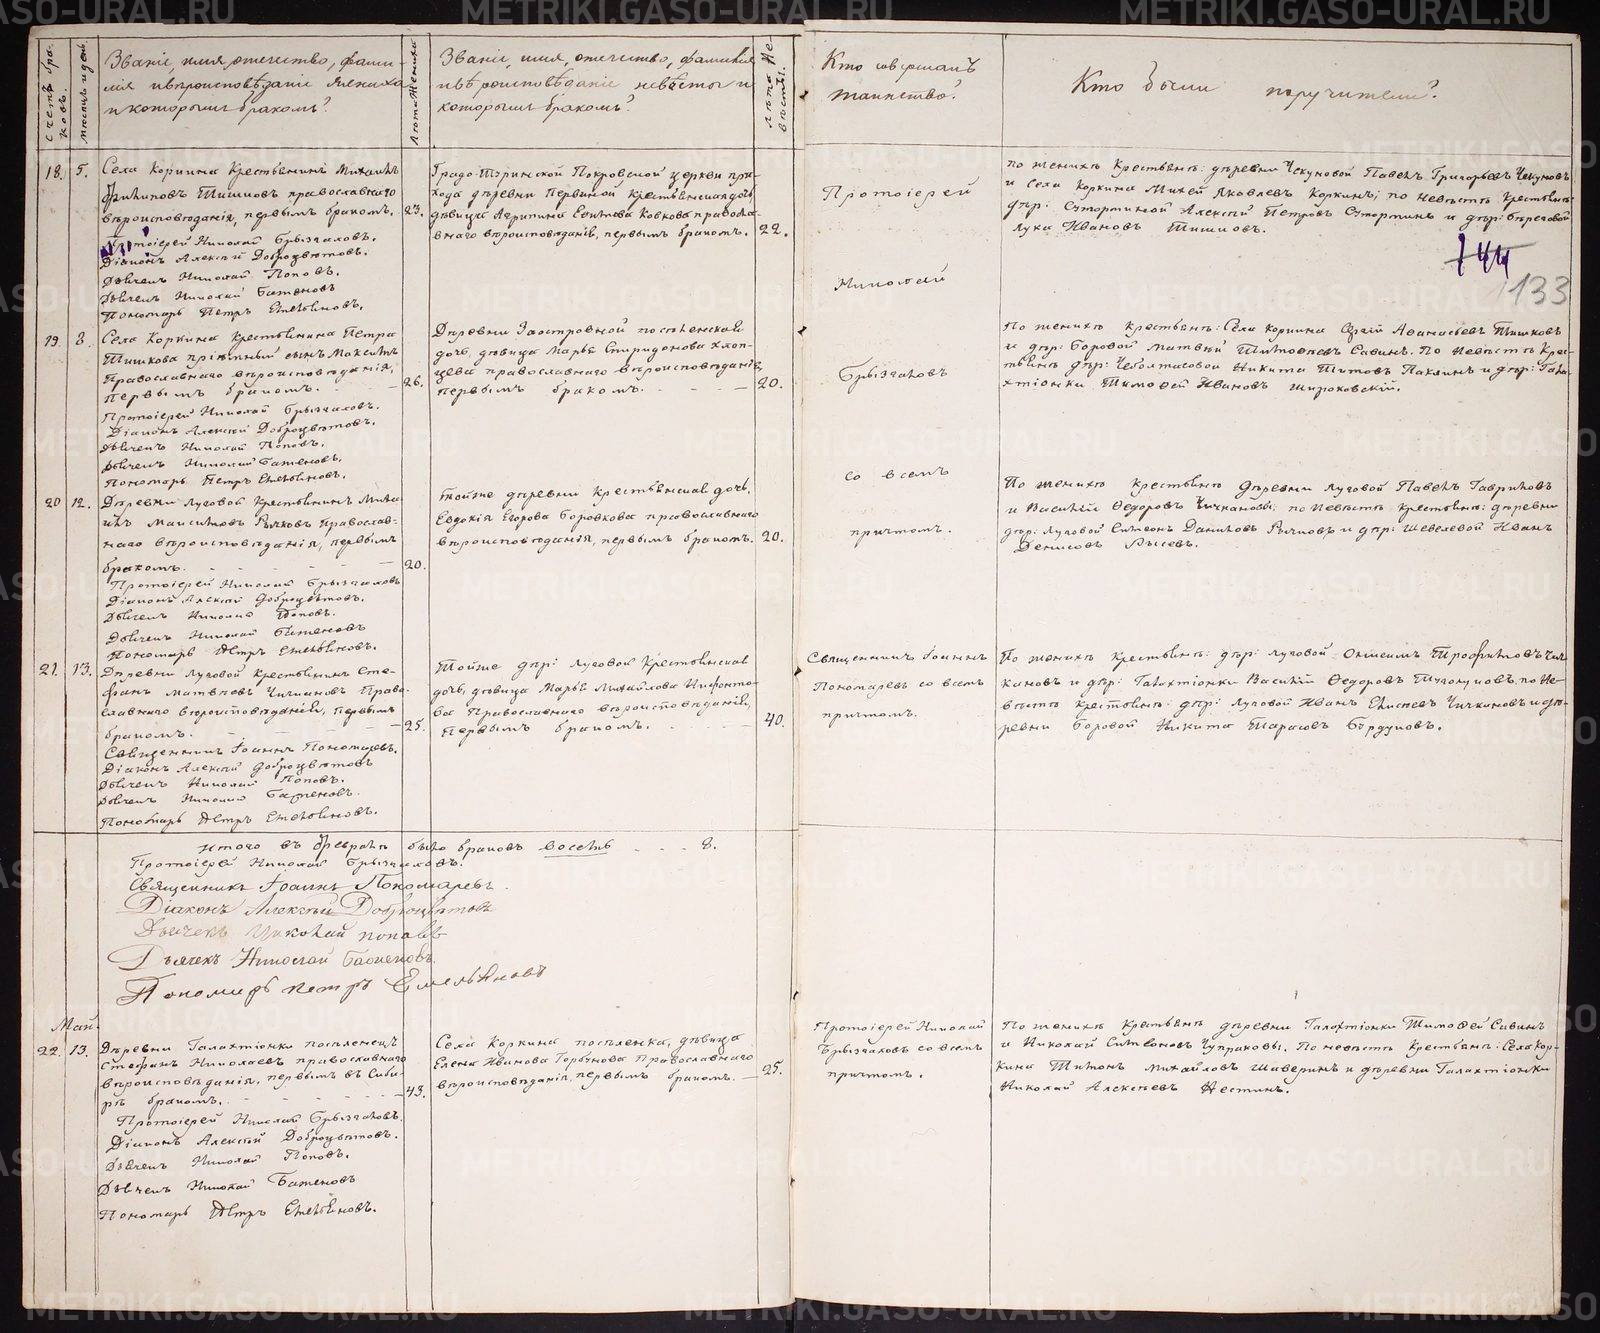 счетъ бра-
ковъ.
мѣсяцъ и день.
Званіе, имя, отчество, фами-
лія и вѣроисповѣданіе жениха
и которымъ бракомъ?
Лѣта жениха
Званіе, имя, отчество, фамилія
и вѣроисповѣданіе невѣсты и
которымъ бракомъ?
лѣта Не-
вѣсты.
Кто совершалъ
таинство?
Кто были поручители?
18. 5.
Села Коркина Крестьянинъ Михаилъ
Филиповъ Тишковъ православнаго
вѣроисповѣданія, первымъ бракомъ. 23.
Протоіерей Николай Брызгаловъ.
Діаконъ Алексѣй Доброцвѣтовъ.
Дьячекъ Николай Поповъ.
Дьячекъ Николай Баженовъ
Пономарь Петръ Емельяновъ.
Градо-Туринской Покровской церкви при-
хода деревни Первиной Крестьянская дочь
дѣвица Агрипина
православ-
наго вѣроисповѣданія, первымъ бракомъ. 22.
Протоіерей
Николай
Брызгаловъ
со всемъ
причтомъ.
По женихѣ Крестьян: деревни Чекуновой Павелъ Григорьевъ Чекуновъ
и Села Коркина Михей Яковлевъ Коркинъ; по невѣстѣ Крестьян:
дер: Алексѣй Петровъ и дер: Береговой
Лука Ивановъ Тишковъ.
133
19. 8.
Села Коркина Крестьянина Петра
Тишкова пріемный сынъ Максимъ
Православнаго вѣроисповѣданія,
первымъ бракомъ. 26.
Протоіерей Николай Брызгаловъ.
Діаконъ Алексѣй Доброцвѣтовъ.
Дьячекъ Николай Поповъ.
Дьячекъ Николай Баженовъ.
Пономарь Петръ Емельяновъ.
Деревни Заостровной поселенская
дочь, дѣвица Марья Спиридонова Хлоп-
цева православнаго вѣроисповѣданія,
первымъ бракомъ. 20.
По женихѣ Крестьян: Села Коркина Сергій Аѳанасьевъ Тишковъ
и дер: Боровой Матвѣй Савинъ. По Невѣстѣ Крес-
тьянъ дер: Никита Титовъ и дер: Гала-
хтіонки Тимоѳей Ивановъ Широковскій.
20 12.
Деревни Луговой Крестьянинъ Миха-
илъ Максимовъ Рычковъ православ-
наго вѣроисповѣданія, первымъ
бракомъ. 20.
Протоіерей Николай Брызгаловъ
Діаконъ Алексѣй Доброцвѣтовъ.
Дьячекъ Николай Поповъ.
Дьячекъ Николай Баженовъ
Пономарь Петръ Емельяновъ.
Тойже деревни крестьянская дочь,
Евдокія Егорова Боровкова православнаго
вѣроисповѣданія, первымъ бракомъ. 20.
По женихѣ крестьянъ деревни Луговой Павелъ Гавриловъ
и Василій Ѳедоровъ Чичкановы; по Невѣстѣ Крестьян: деревни
дер: Луговой Симеонъ Даниловъ Рычковъ и дер: Шевелевой Иванъ
Денисовъ
21. 13.
Деревни Луговой Крестьянинъ Сте-
фанъ Матвѣевъ Чичкановъ Право-
славнаго вѣроисповѣданія, первымъ
бракомъ. 25.
Священникъ Іоаннъ Пономаревъ.
Діаконъ Алексѣй Доброцвѣтовъ
Дьячекъ Николай Поповъ.
Дьячекъ Николай Баженовъ.
Пономарь Петръ Емельяновъ.
Тойже дер: Луговой Крестьянская
дочь, дѣвица Марья Михайлова Нифонто-
ва Православнаго вѣроисповѣданія,
первымъ бракомъ. 40.
Священникъ Іоаннъ
Пономаревъ со всемъ
причтомъ.
По женихѣ Крестьян: дер: Луговой Онисимъ Трофимовъ Чич-
кановъ и дер: Галахтіонки Василій Ѳедоровъ по Не-
вѣстѣ Крестьян: дер: Луговой Иванъ Елисеевъ Чичкановъ и де-
ревни Боровой Никита Тарасовъ Бердюговъ.
Итого въ Февралѣ было браковъ восемь . . . 8.
Протоіерей Николай Брызгаловъ.
Священникъ Іоаннъ Пономаревъ.
Діаконъ Алексѣй Доброцвѣтовъ
Дьячекъ Николай поповъ
Дьячекъ Николай Баженовъ.
Пономарь Петръ Емельяновъ
Май.
22. 13.
Деревни Галахтіонки поселенецъ
Стефанъ Николаевъ православнаго
вѣроисповѣданія, первымъ въ Сиби-
рѣ бракомъ. 43.
Протоіерей Николай Брызгаловъ.
Діаконъ Алексѣй Доброцвѣтовъ.
Дьячекъ Николай Поповъ.
Дьячекъ Николай Баженовъ
Пономарь Петръ Емельяновъ.
Села Коркина поселенка, дѣвица
Елена Иванова Горбунова Православнаго
вѣроисповѣданія, первымъ бракомъ. 25.
Протоіерей Николай
Брызгаловъ со всемъ
причтомъ.
По женихѣ Крестьянъ деревни Галахтіонки Тимоѳей Савинъ
и Николай Симеоновъ Чупраковы. По невѣстѣ Крестьян: Села Кор-
кина Титъ Михайловъ Шаверинъ и деревни Галахтіонки
Николай Алексѣевъ Нестинъ.
METRIKI.GASO-URAL.RU